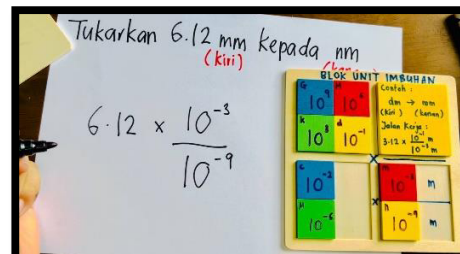 Tukarkan 6.12 mm kepada nm
(kiri)
6.12 × 10⁻³
10⁻⁹
BLOK UNIT IMBUHAN
G 10⁹
10⁶
k 10³
d 10⁻¹
Contoh :
dm → mm
(kiri) (kanan)
Jalan Kerja :
3.12 × 10⁻¹ m
10⁻³ m
c 10⁻²
μ 10⁻⁶
×
m 10⁻³ m
×
n 10⁻⁹ m